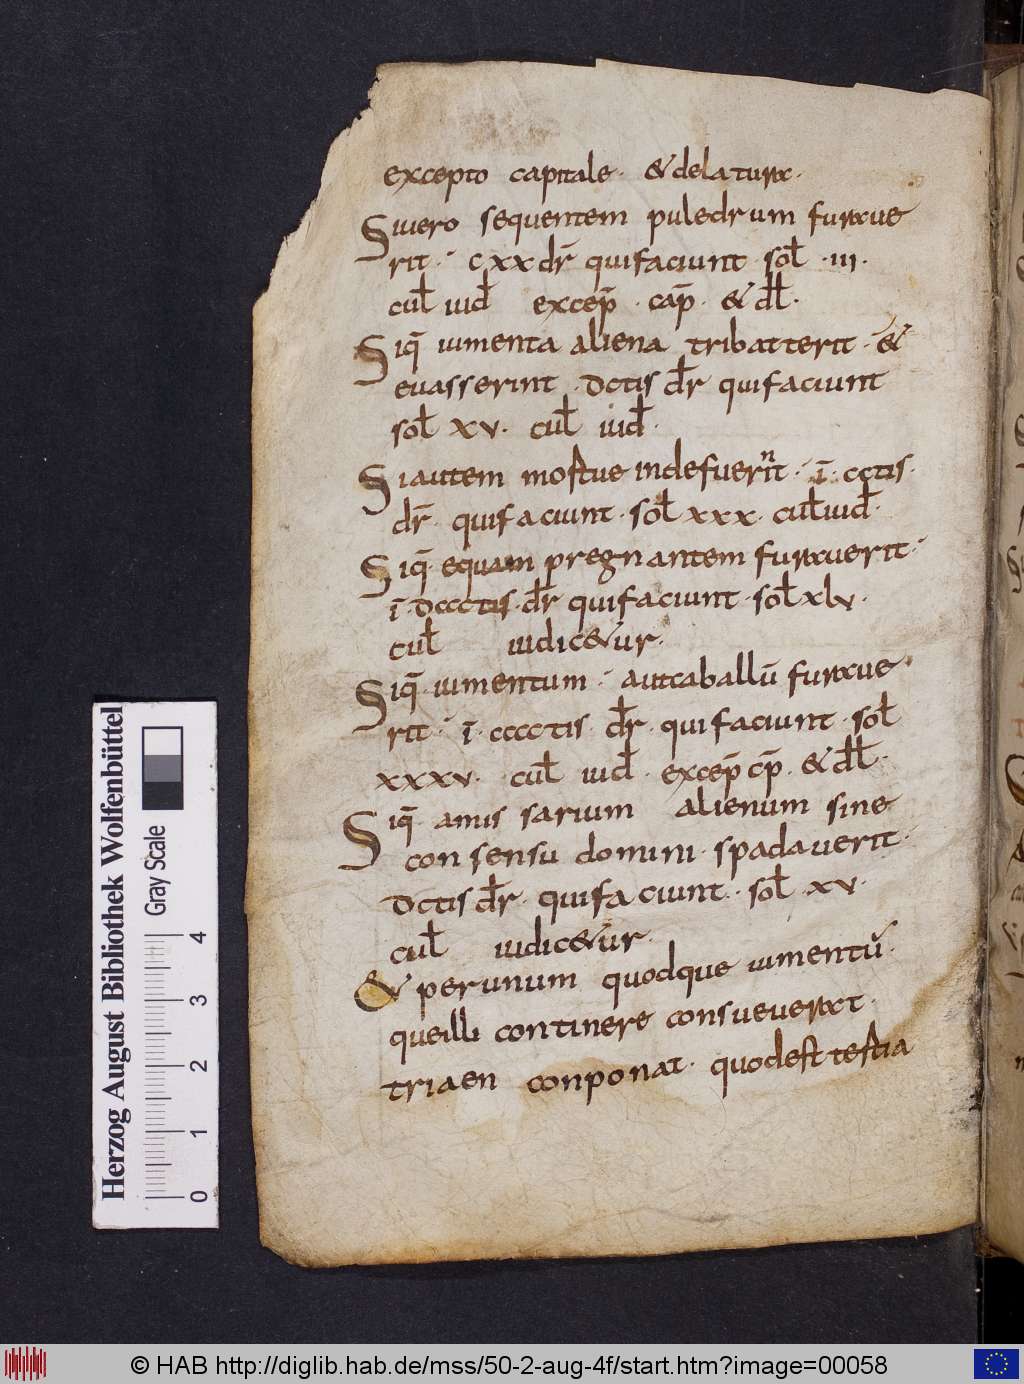 excepto capitale · & delatura ·
Siuero sequentem puledrum furaue
rit · cxx dr̄ quifaciunt · sol · iii ·
cul iud excep̄ · cap̄ · & dl ·
Siq̄ iumenta aliena tribatterit · &
euasserint · dctis dr quifaciunt
sol xv · cul iud ·
Siautem mortue indefuerint · ī · cctis ·
dr̄ · quifaciunt · sol xxx · cul iud ·
Siq̄ equam pregnantem furauerit ·
ī · dccctis · dr quifaciunt · sol xlv ·
cul iudicetur ·
Siq̄ · iumentum · autcaballū furaue
rit · ī · cccctis · dr · quifaciunt · sol
xxxv · cul iud · excep̄ cp̄ · & dl ·
Siq̄ amissarium alienum sine
consensu domini · spadauerit ·
dctis dr · quifaciunt · sol · xv ·
cul iudicetur ·
& perunum quodque iumentū ·
queilli continere consueuerat ·
triaen conponat · quodest testia
Herzog August Bibliothek Wolfenbüttel
Gray Scale
0 1 2 3 4
© HAB http://diglib.hab.de/mss/50-2-aug-4f/start.htm?image=00058